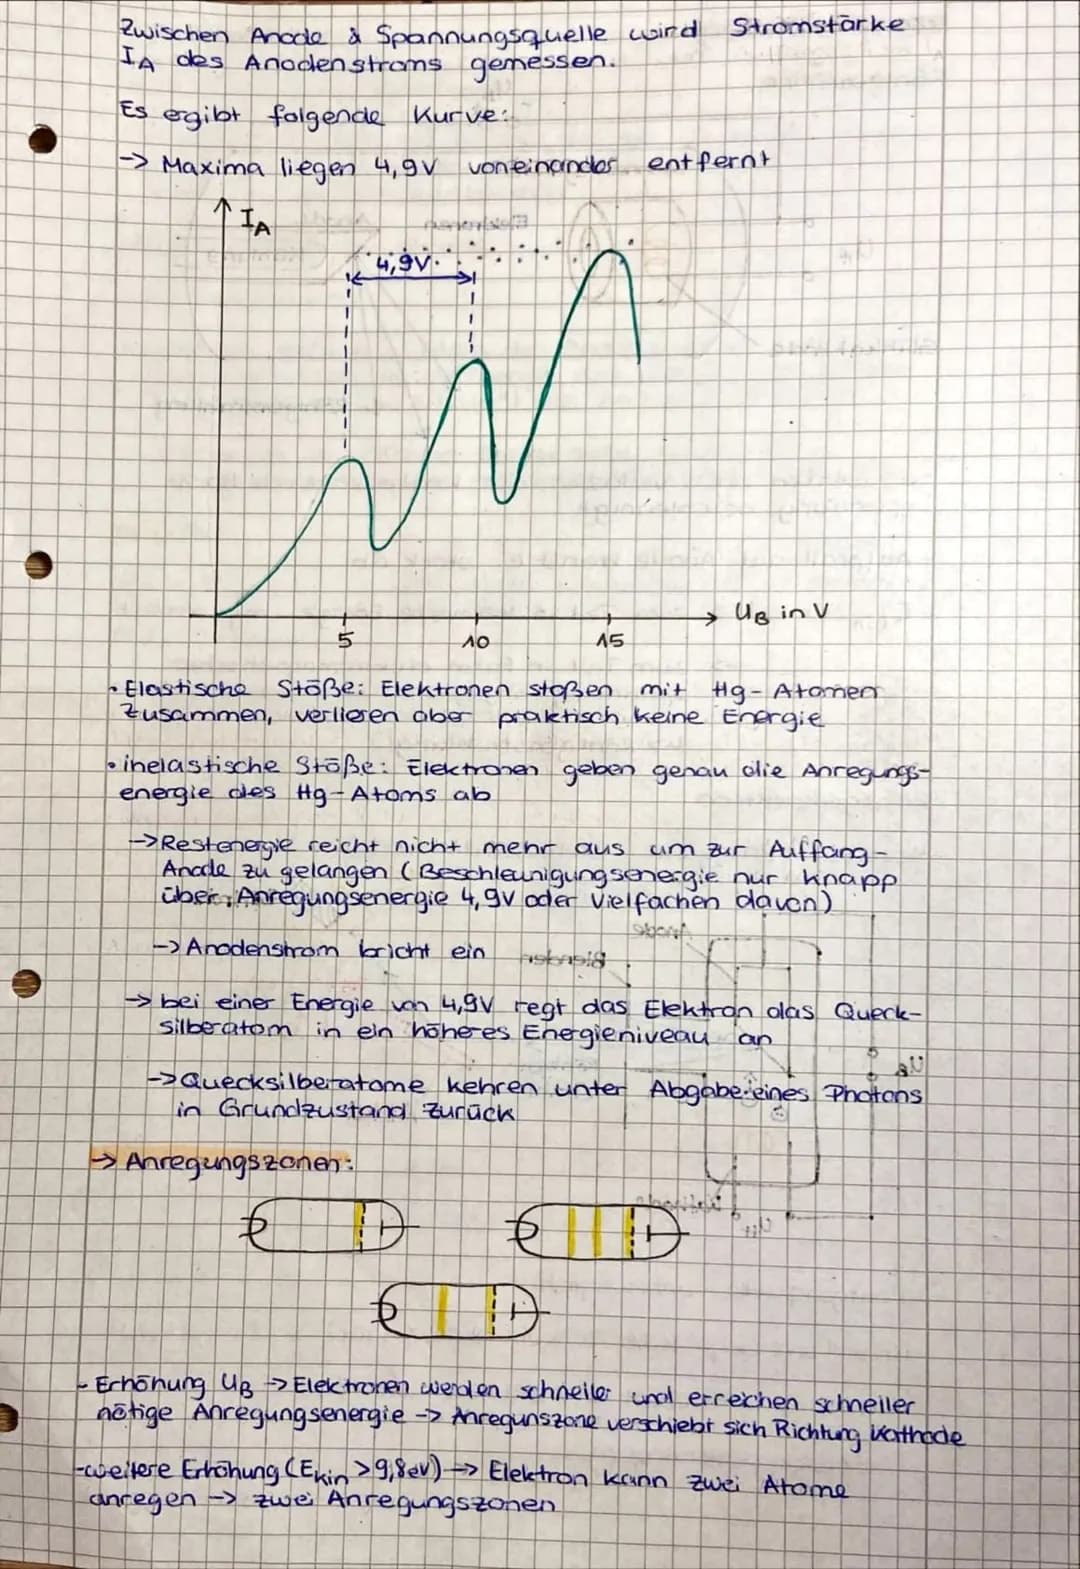 Zwischen Anode & Spannungsquelle wird Stromstärke
I_A des Anodenstroms gemessen.
Es ergibt folgende Kurve:
-> Maxima liegen 4,9V voneinander entfernt
I_A
4,9V
U_B in V
5
10
15
• Elastische Stöße: Elektronen stoßen mit Hg-Atomen
zusammen, verlieren aber praktisch keine Energie
• inelastische Stöße: Elektronen geben genau die Anregungs-
energie des Hg-Atoms ab
-> Restenergie reicht nicht mehr aus um zur Auffang-
Anode zu gelangen (Beschleunigungsenergie nur knapp
über Anregungsenergie 4,9V oder Vielfachen davon)
-> Anodenstrom bricht ein
-> bei einer Energie von 4,9V regt das Elektron das Queck-
silberatom in ein höheres Energieniveau an
-> Quecksilberatome kehren unter Abgabe eines Photons
in Grundzustand zurück
-> Anregungszonen:
- Erhöhung U_B -> Elektronen werden schneller und erreichen schneller
nötige Anregungsenergie -> Anregunszone verschiebt sich Richtung Kathode
- weitere Erhöhung (E_kin > 9,8eV) -> Elektron kann zwei Atome
anregen -> zwei Anregungszonen